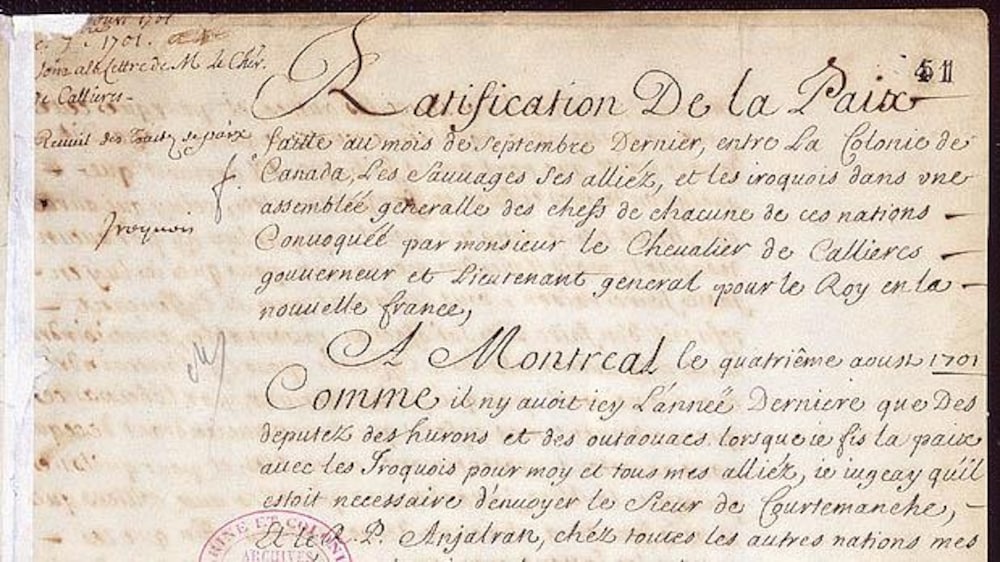 1701.
Jointe à la Lettre de M. Le Cher.
de Callieres -
Recueil des Traitez de paix
Iroquois
51
Ratification De la Paix
faitte au mois de septembre Dernier, entre La Colonie de
Canada, Les Sauvages ses alliéz, et les iroquois dans vne
assemblée generalle des chefs de chacune de ces nations
Conuoquée par monsieur le Cheualier de Callieres
gouuerneur et Lieutenant general pour le Roy en la
nouuelle france,
A Montreal le quatriême aoust 1701
Comme il ny auoit icy L'anneé Derniere que Des
deputez des hurons et des outaouacs lorsque ie fis la paix
auec les Iroquois pour moy et tous mes alliéz, ie iugeay qu'il
estoit necessaire d'enuoyer le Sieur de Courtemanche,
Et le R. P. Anjalran, chéz toutes les autres nations mes
ARCHIVES